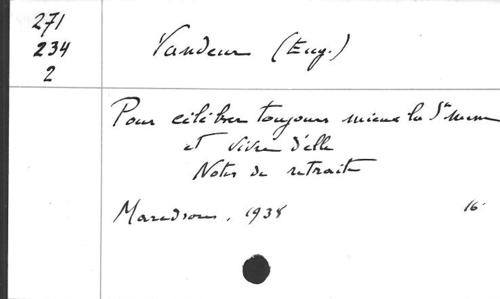 271
234
2
Vandeur (Eug.)
Pour célébrer toujours mieux la Ste Messe
et vivre d'elle
Notes de retraite
Maredsous, 1938
16